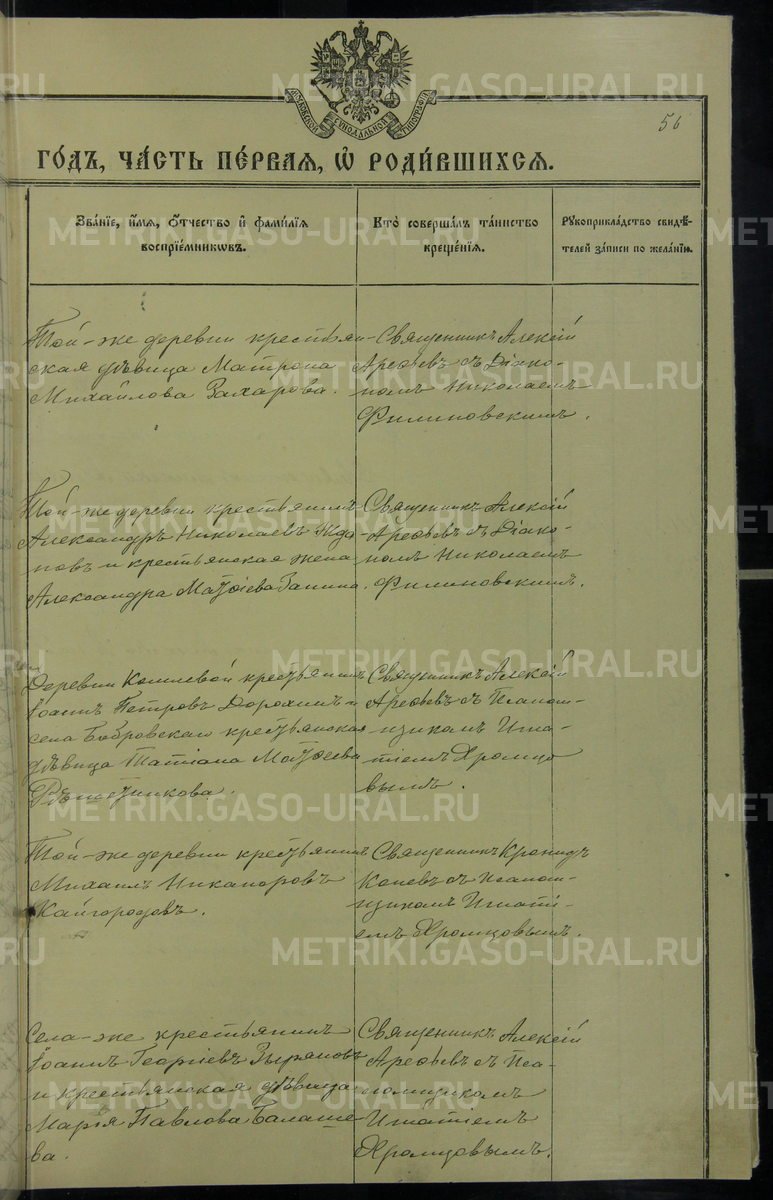 МОСКОВСКОЙ СѴНОДАЛЬНОЙ ТИПОГРАФІИ
56
ГО́ДЪ, ЧА́СТЬ ПЕ́РВАЯ, Ѡ҆ РОДИ́ВШИХСЯ.
Зва́нїе, и҆́мя, ѻ҆́тчество и҆ фами́лїя
воспрїе́мникѡвъ.
Кто̀ соверша́лъ та́инство
креще́нїя.
Рꙋкоприкла́дство свидѣ́-
телей за́писи по жела́нїю.
Той-же деревни крестьян-
ская дѣвица Матрона
Михайлова Захарова.
Священникъ Алексій
Арефьевъ съ Діако-
номъ Николаемъ
Филиновскимъ.
Той-же деревни крестьянинъ
Александръ Николаевъ Жда-
новъ и крестьянская жена
Александра Матѳіева Ганина.
Священникъ Алексій
Арефьевъ съ Діако-
номъ Николаемъ
Филиновскимъ.
Деревни крестьянинъ
Іоаннъ Петровъ Дорохинъ и
села Бобровскаго крестьянская
дѣвица Татіана Матѳіева
Рѣшетникова.
Священникъ Алексій
Арефьевъ съ Псалом-
щикомъ Игна-
тіемъ Хромцо-
вымъ.
Той-же деревни крестьянинъ
Михаилъ Никаноровъ
Кайгородовъ.
Священникъ Кронидъ
Коневъ съ Псалом-
щикомъ Игнаті-
емъ Хромцовымъ.
Села-же крестьянинъ
Іоаннъ Георгіевъ Зыряновъ
и крестьянская дѣвица
Марія Павлова Балаше-
ва.
Священникъ Алексій
Арефьевъ съ Пса-
ломщикомъ
Игнатіемъ
Хромцовымъ.
METRIKI.GASO-URAL.RU